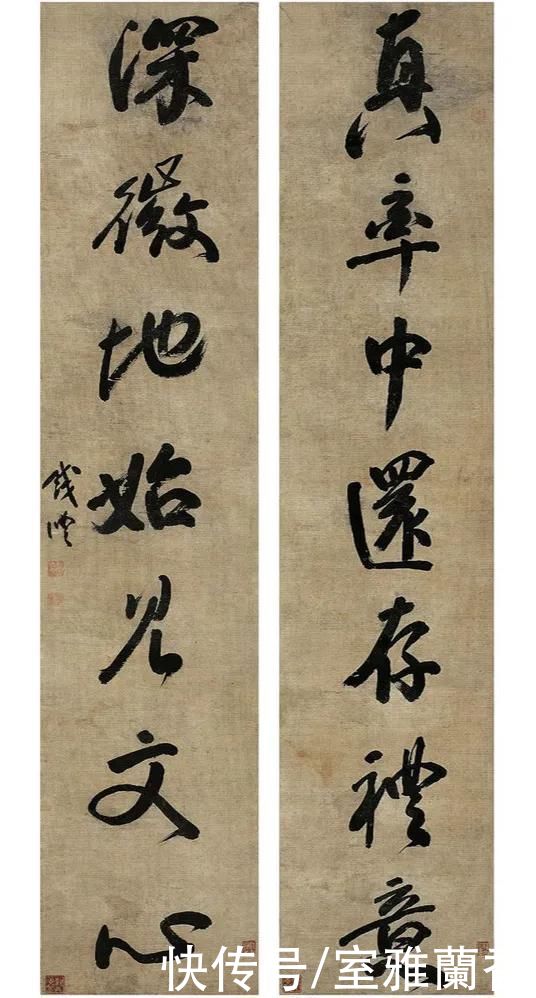 真率中還存禮意
深微地始見文心
錢灃
快传号/室雅蘭香